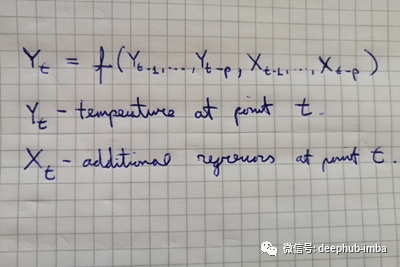 Y_t = f(Y_{t-1},...,Y_{t-p}, X_{t-1},...,X_{t-p})
Y_t - tempeuture at point t.
X_t - additional regressors at point t.
微信号: deephub-imba